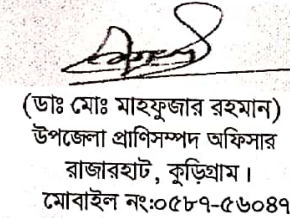 (ডাঃ মোঃ মাহফুজার রহমান)
উপজেলা প্রাণিসম্পদ অফিসার
রাজারহাট, কুড়িগ্রাম।
মোবাইল নং:০৫৮৭-৫৬০৪৭